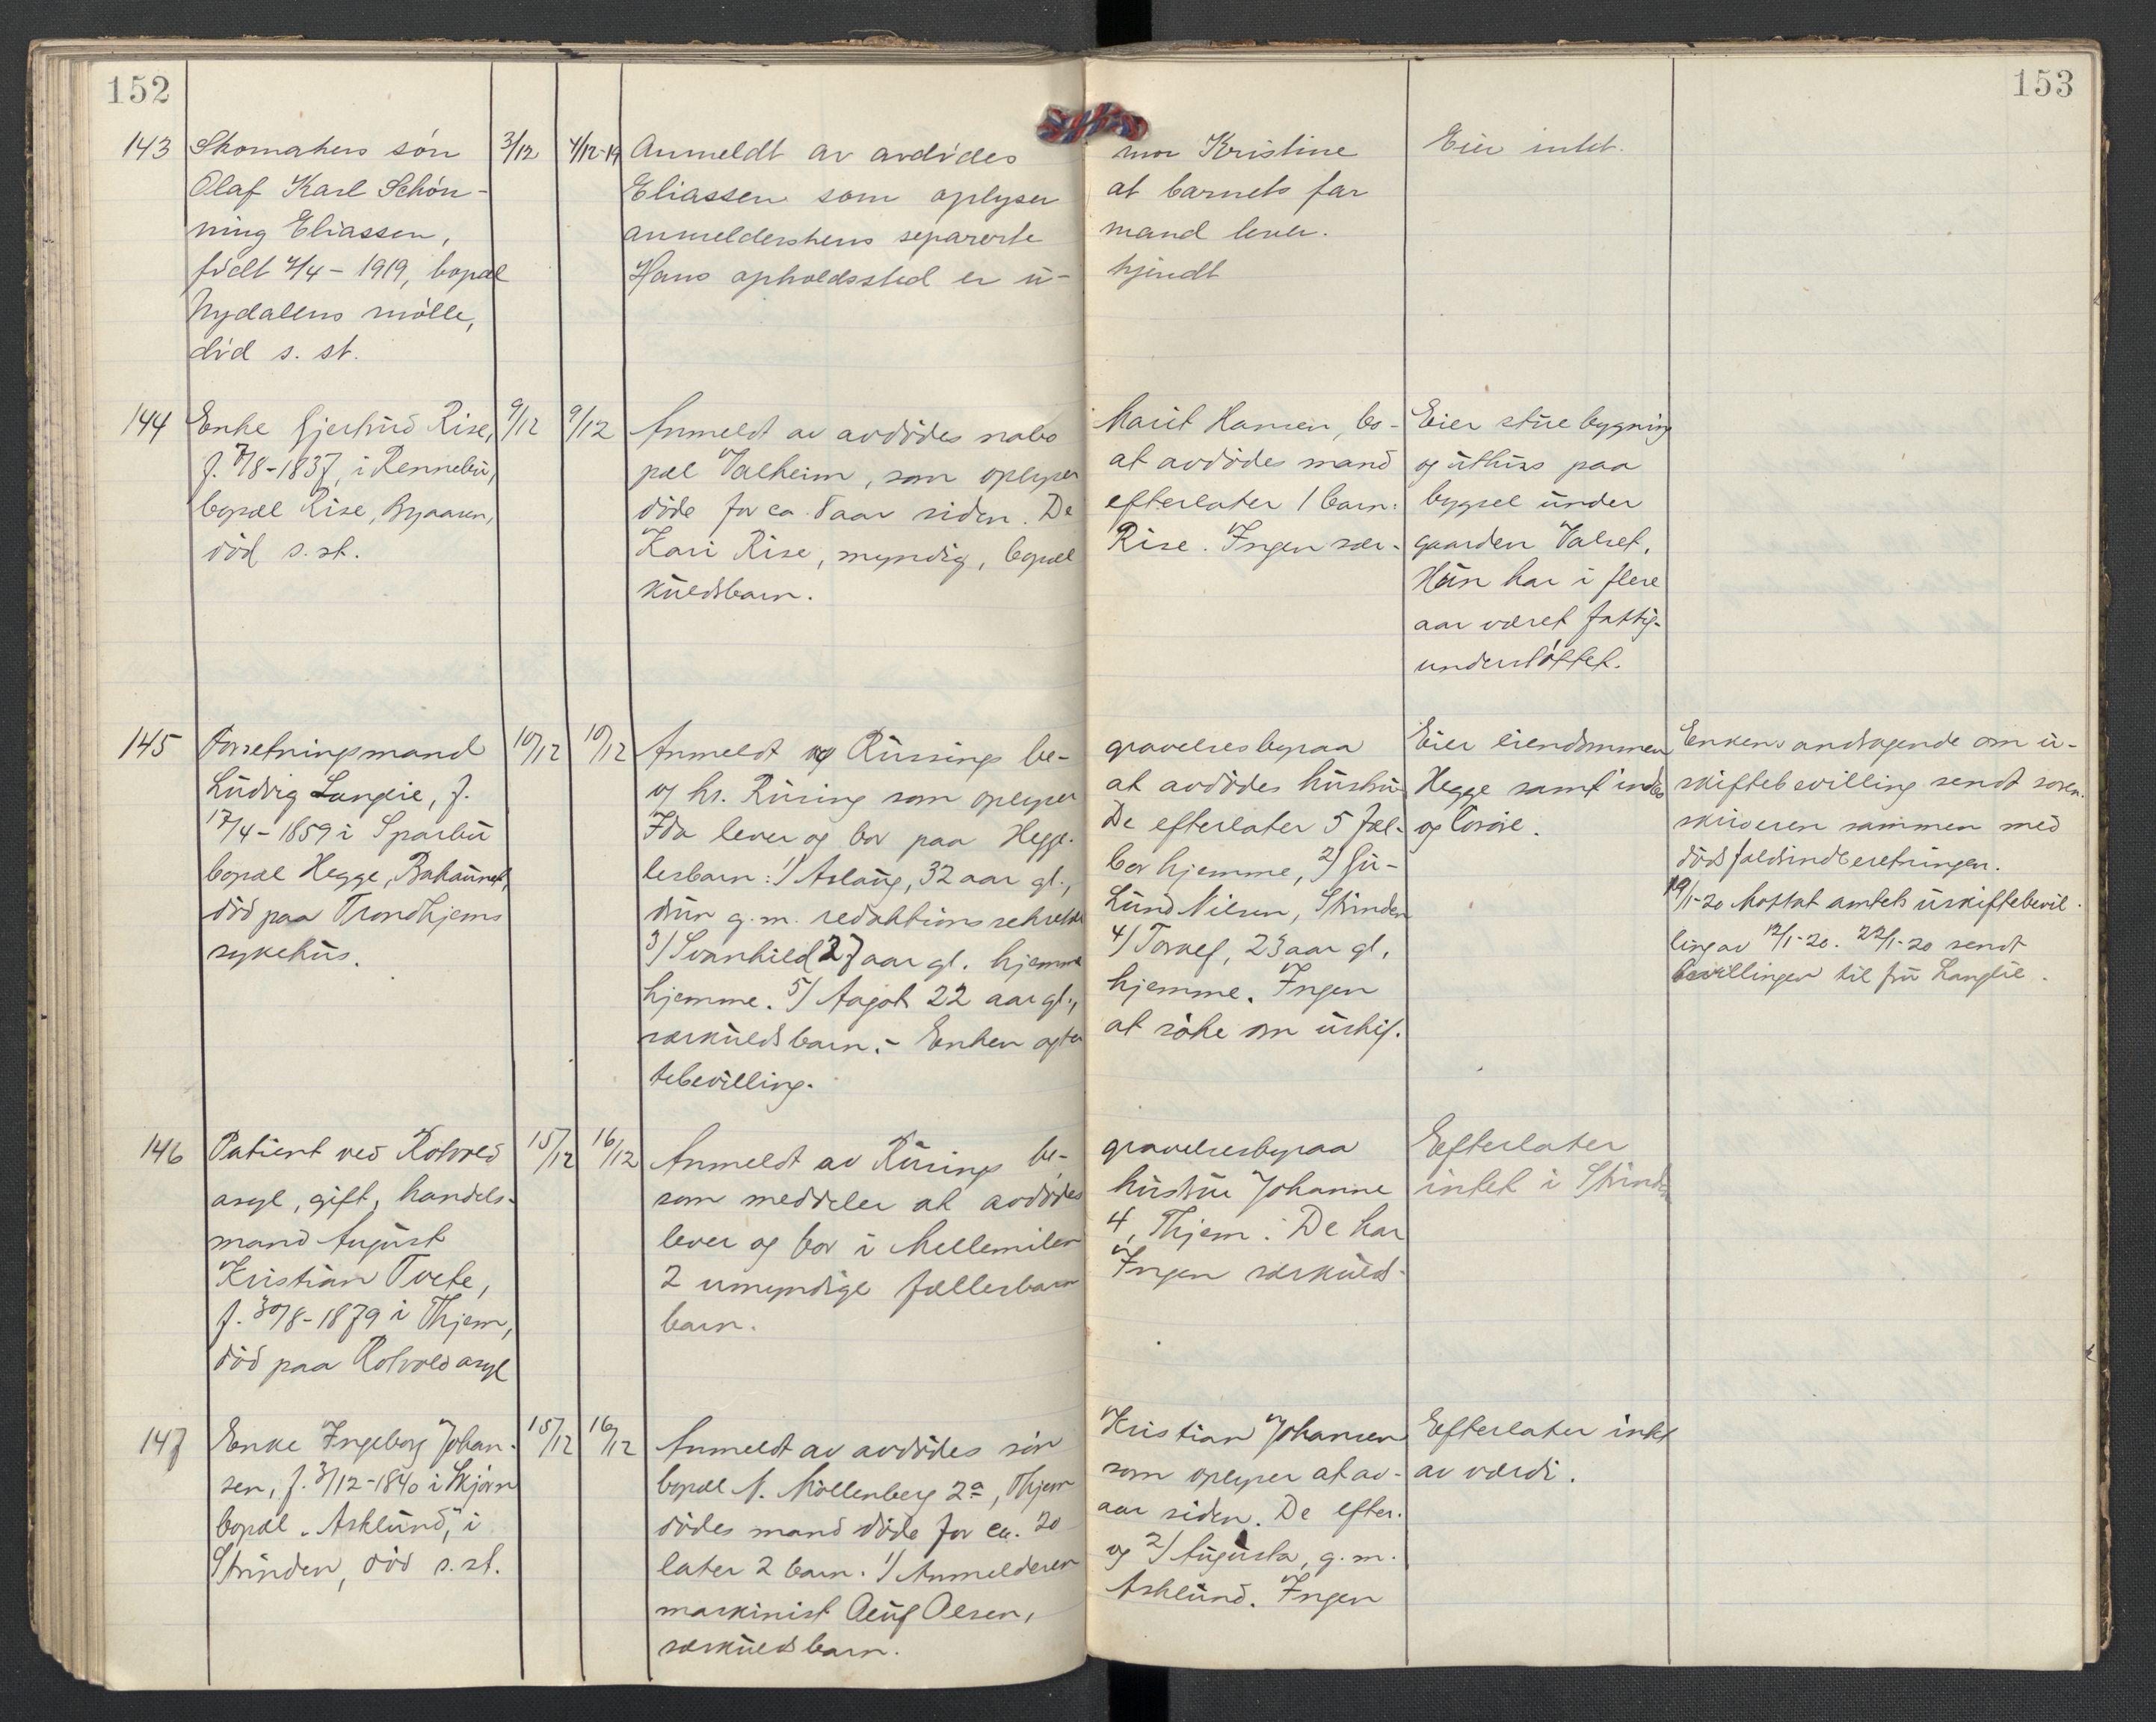 152
153
143 Skomakers søn 3/12 4/12-19 Anmeldt av avdødes mor Kristine Eier intet.
Olaf Karl Schøn- Eliassen som oplyser at barnets far
ning Eliassen, anmelderskens separerte mand lever.
født 4/4-1919, bopæl Hans opholdssted er u- kjendt
Nydalens mølle,
død s. st.
144 Enke Gjertrud Rise, 9/12 9/12 Anmeldt av avdødes nabo Marit Hansen, bo- Eier stuebygning
f. 7/8-1837, i Rennebu, pæl Valheim, som oplyser at avdødes mand og uthus paa
bopæl Rise, Byaasen, døde for ca. 8 aar siden. De efterlater 1 barn: bygsel under
død s. st. Kari Rise, myndig, bopæl Rise. Ingen sær- gaarden Valset.
kuldsbarn. Hun har i flere
aar været fattig-
understøttet.
145 Forretningsmand 10/12 10/12 Anmeldt av Rusings be- gravelsesbyraa Eier eiendommen Enkens andragende om u-
Ludvig Langlie, f. og hr. Rusing som oplyser at avdødes hustru Hegge samt indbo skiftebevilling sendt soren-
17/4-1859 i Sparbu Ida lever og bor paa Hegge. De efterlater 5 fæl- og løsøre. skriveren sammen med
bopæl Hegge, Bakaunet, lesbarn: 1/ Aslaug, 32 aar gl., bor hjemme, 2/ Gu- dødsfaldsindberetningen.
død paa Trondhjems drun g.m. redaktionssekretær Lund Nilsen, Strinden 19/1-20 Mottat amtets uskiftebevil-
sykehus. 3/ Svanhild 27 aar gl. hjemme 4/ Torleif, 23 aar gl, ling av 12/1-20. 22/1-20 sendt
hjemme. 5/ Aagot 22 aar gl., hjemme. Ingen bevillingen til fru Langlie.
særkuldsbarn.- Enken agter at søke om uskif-
tebevilling.
146 Patient ved Rotvold 15/12 16/12 Anmeldt av Rusings be- gravelsesbyraa Efterlater
asyl, gift, handels- som meddeler at avdødes hustru Johanne intet i Strinden
mand August lever og bor i Mellemilen 4, Thjem. De har
Kristian Tvete, 2 umyndige fællesbarn Ingen særkuld-
f. 30/8-1879 i Thjem, barn.
død paa Rotvold asyl
147 Enke Ingeborg Johan- 15/12 16/12 Anmeldt av avdødes søn Kristian Johansen Efterlater intet
sen, f. 3/12-1840 i Skjørn bopæl N. Møllenberg 2a, Thjem som oplyser at av- av værdi.
bopæl "Asklund," i dødes mand døde for ca. 20 aar siden. De efter-
Strinden, død s. st. later 2 barn. 1/ Anmelderen og 2/ Augusta, g.m.
maskinist Oluf Olsen, Asklund. Ingen
særkuldsbarn.